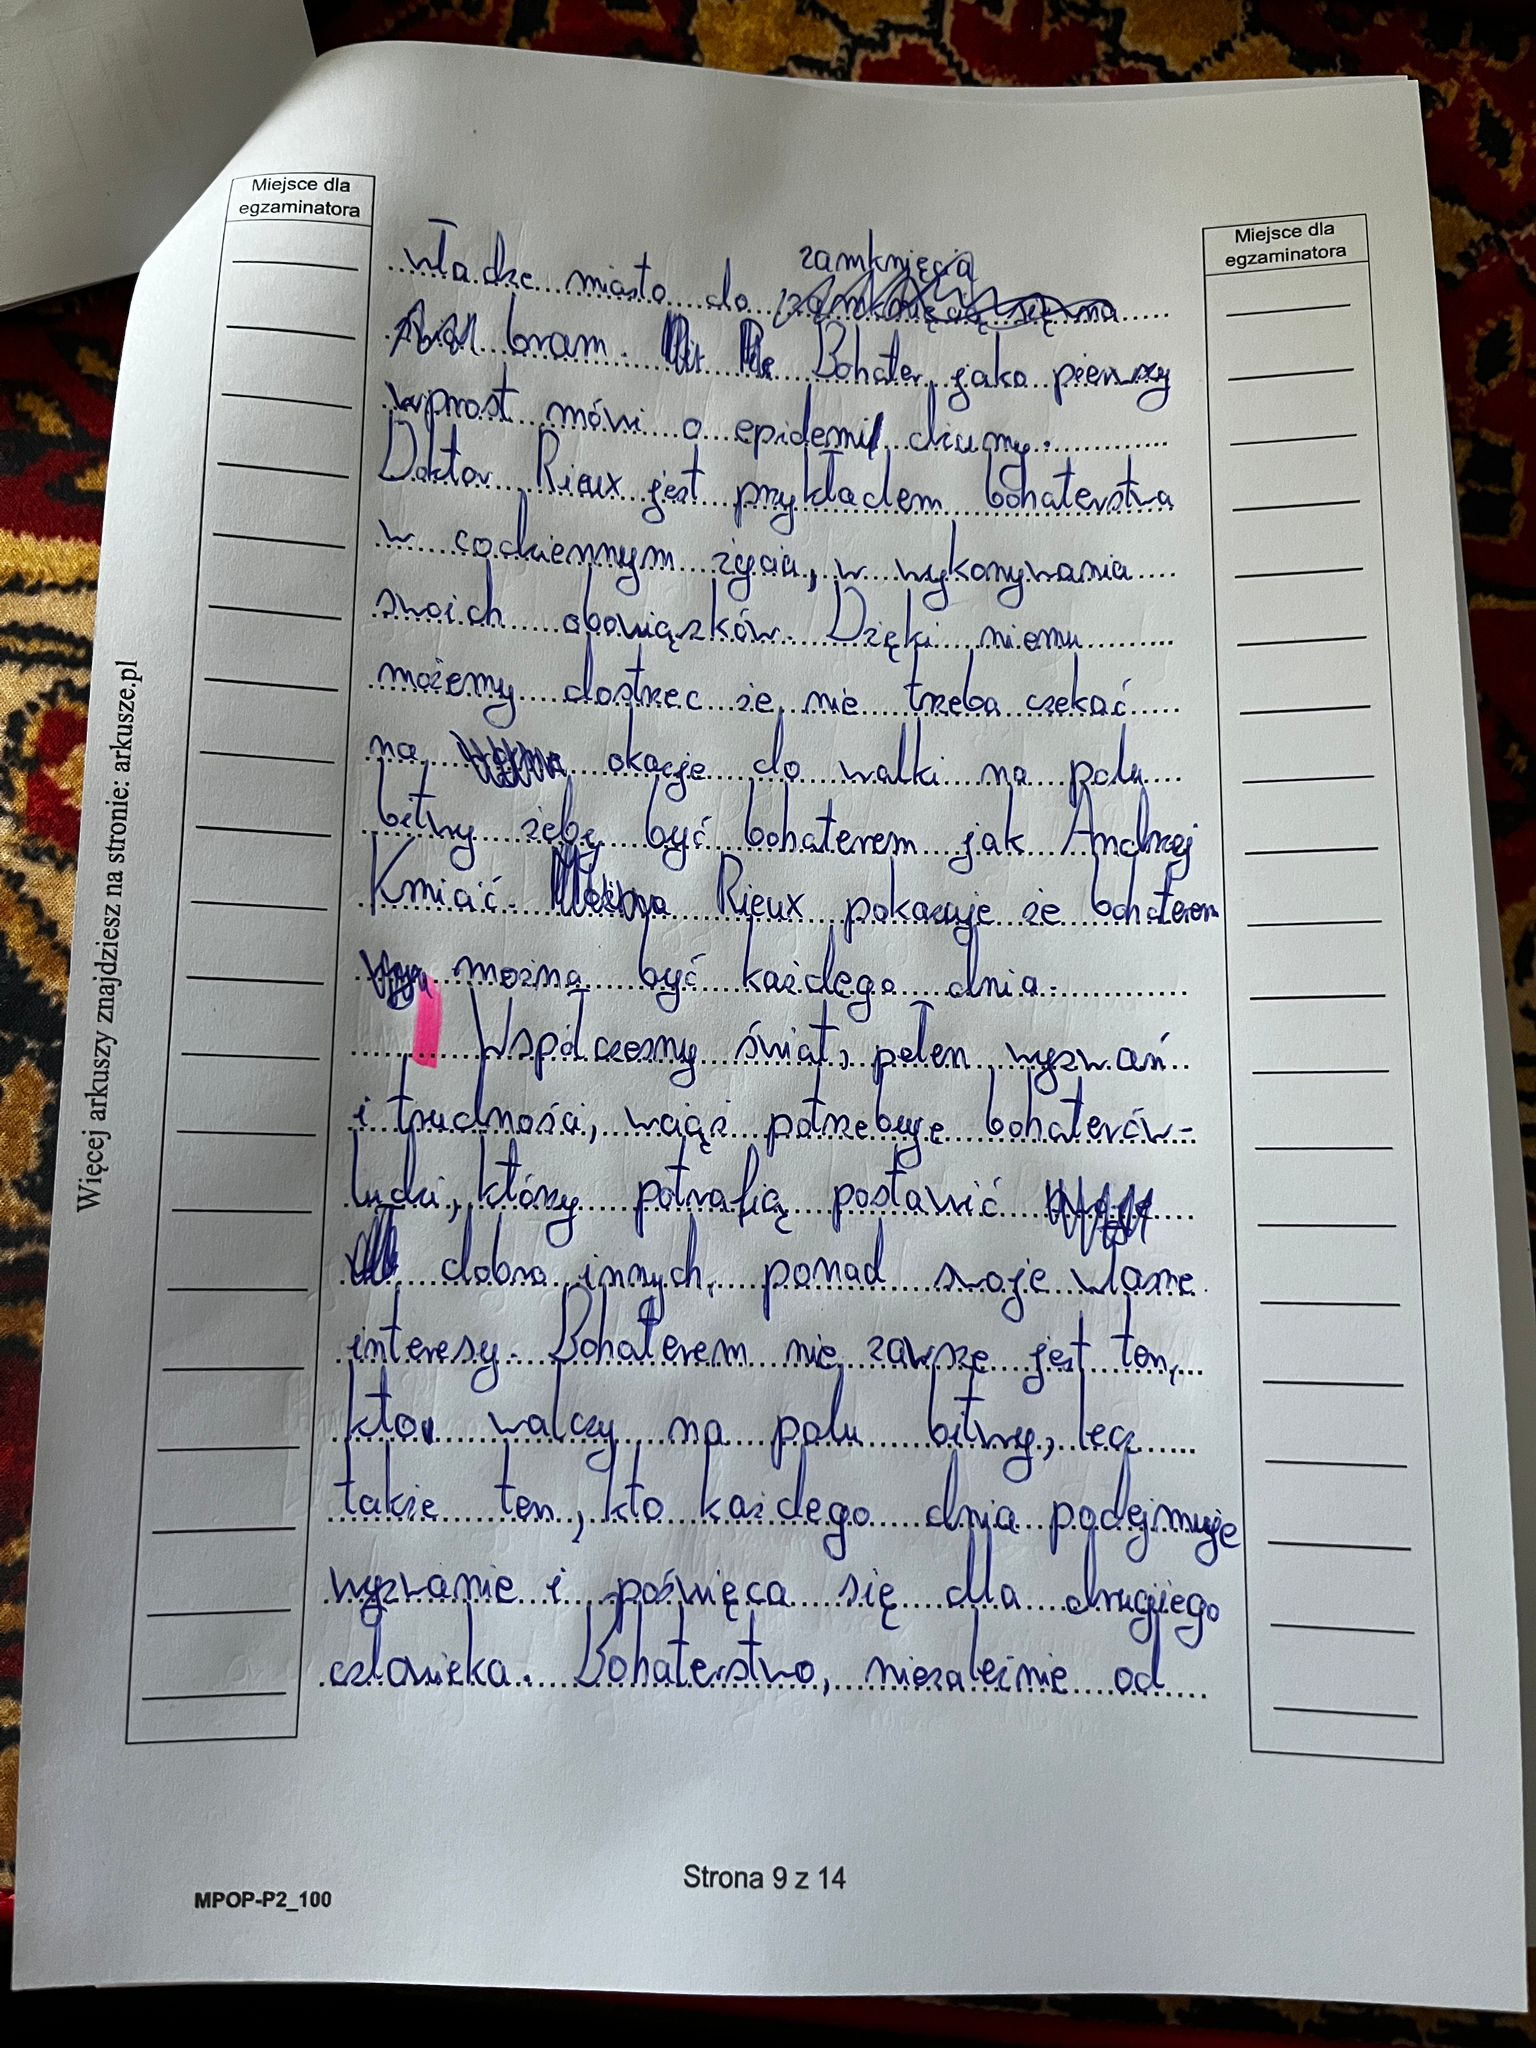 Miejsce dla
egzaminatora
Miejsce dla
egzaminatora
władze miasto do zamknięcia
bram. Bohater jako pierwszy
wprost mówi o epidemi dżumy.
Doktor Rieux jest przykładem bohaterstwa
w codziennym życiu, w wykonywania
swoich obowiązków. Dzięki niemu
możemy dostrzec że nie trzeba czekać
na okazje do walki na polu
bitwy żeby być bohaterem jak Andrzej
Kmicic. Rieux pokazuje że bohaterem
można być każdego dnia.
Współczesny świat, pełen wyzwań
i trudności, wciąż potrzebuje bohaterów-
ludzi, którzy potrafią postawić
dobro innych, ponad swoje własne
interesy. Bohaterem nie zawsze jest ten,
kto walczy na polu bitwy, lecz
także ten, kto każdego dnia podejmuje
wyzwanie i poświęca się dla drugiego
człowieka. Bohaterstwo, niezależnie od
Więcej arkuszy znajdziesz na stronie: arkusze.pl
Strona 9 z 14
MPOP-P2_100